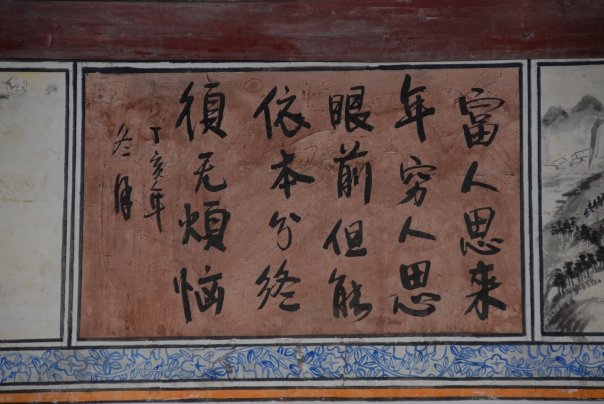 富人思来
年穷人思
眼前但能
依本分终
须无烦恼
丁亥年
冬月